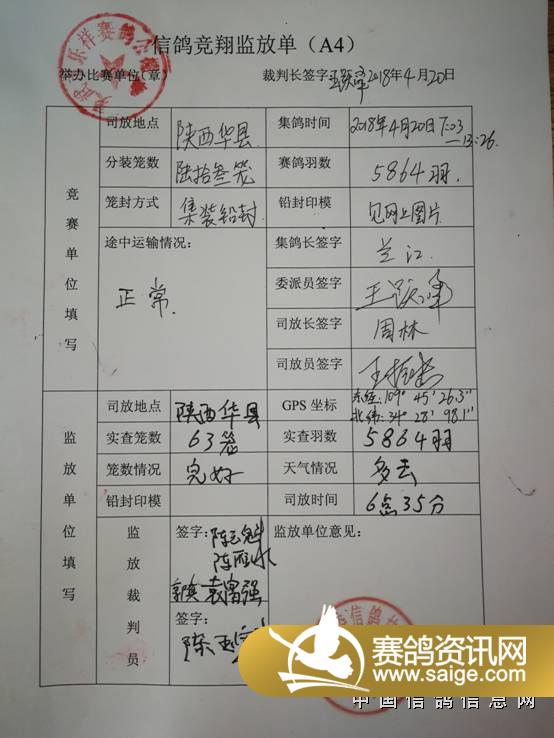 信鸽竞翔监放单（A4）
举办比赛单位（章） 裁判长签字 2018年4月20日
竞赛单位填写
司放地点 陕西华县 集鸽时间 2018年4月20日 7:03—13:26
分装笼数 陆拾叁笼 赛鸽羽数 5864羽.
笼封方式 集装铅封. 铅封印模 见网上图片
途中运输情况： 正常. 集鸽长签字 兰江
委派员签字
司放长签字 周林
司放员签字
监放单位填写
司放地点 陕西华县 GPS坐标 东经:109° 45' 26.3" 北纬:34° 28' 98.1"
实查笼数 63笼 实查羽数 5864羽
笼数情况 完好 天气情况 多云
铅封印模 司放时间 6点35分
监放裁判员 签字: 监放单位意见:
袁富强
签字:
赛鸽资讯网
www.saige.com
中国信鸽信息网